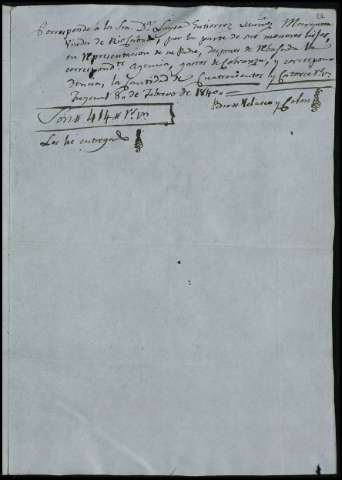 Corresponde a la Sra Da Luisa Gutierrez Marquesa
Viuda de por la parte de sus menores hijos,
en representacion de su Padre, despues de rebajada la
correspondte Agencia, gastos de cobranza, y correspon
dencia, la cantidad de Cuatrocientos y Catorce rs vn
8 de Febrero de 1840
Velasco y
Son # 414 # rs vn
Los he entregado